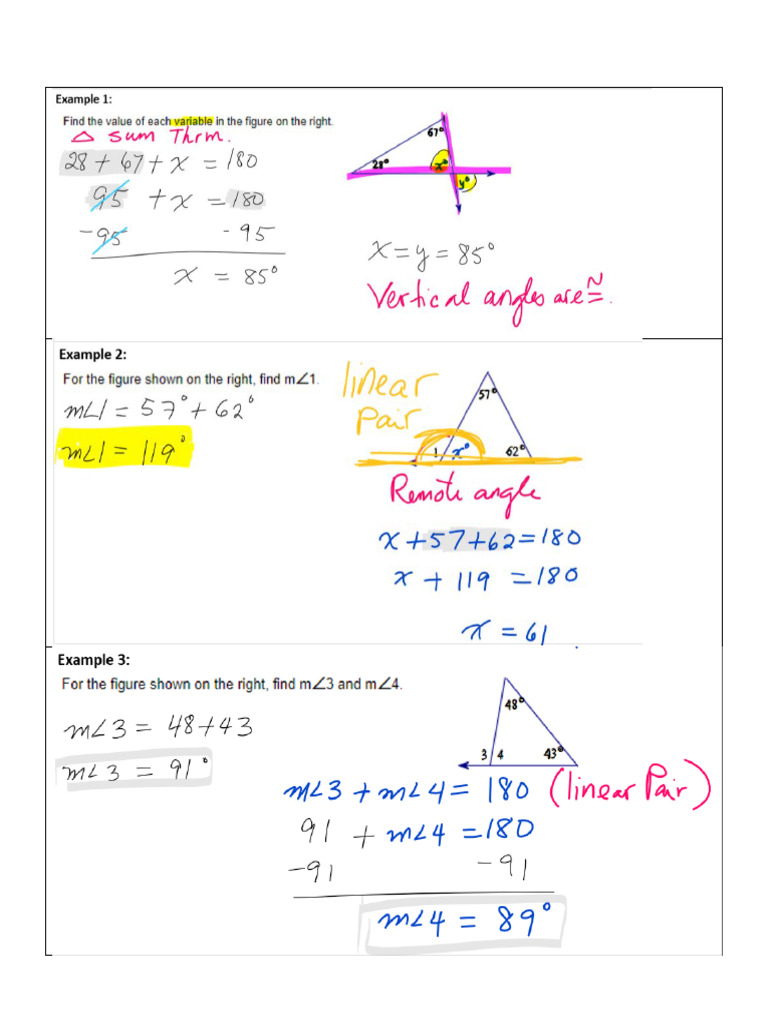 Example 1:
Find the value of each variable in the figure on the right.
△ sum Thrm.
28 + 67 + x = 180
95 + x = 180
-95 -95
x = 85°
67°
28°
x°
y°
x = y = 85°
Vertical angles are ≅.
Example 2:
For the figure shown on the right, find m∠1.
m∠1 = 57° + 62°
m∠1 = 119°
linear
Pair
57°
1 x° 62°
Remote angle
x + 57 + 62 = 180
x + 119 = 180
x = 61
Example 3:
For the figure shown on the right, find m∠3 and m∠4.
m∠3 = 48 + 43
m∠3 = 91°
48°
3 4 43°
m∠3 + m∠4 = 180 (linear Pair)
91 + m∠4 = 180
-91 -91
m∠4 = 89°